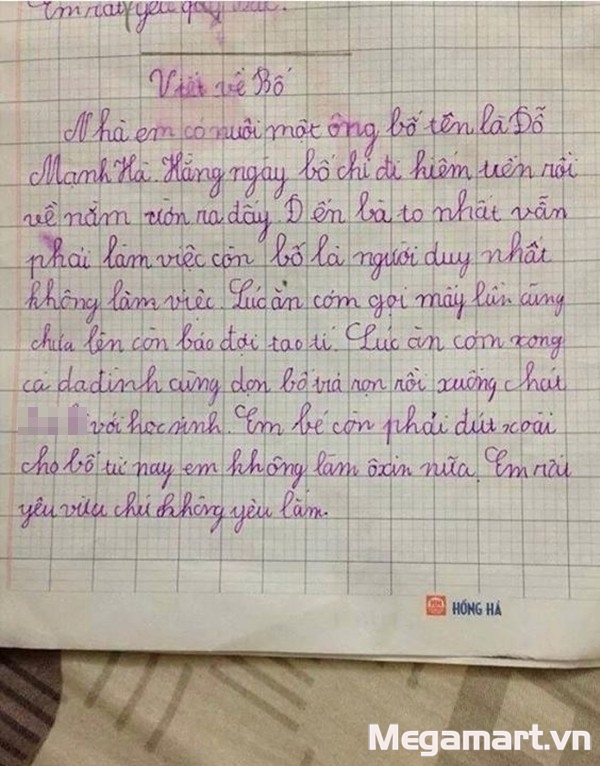 Em rất yêu
Viết về Bố
Nhà em có nuôi một ông bố tên là Đỗ
Mạnh Hà. Hằng ngày bố chỉ đi kiếm tiền rồi
về nằm ườn ra đấy Đến bà to nhất vẫn
phải làm việc còn bố là người duy nhất
không làm việc. Lúc ăn cơm gọi mấy lần cũng
chưa lên còn bảo đợi tao tí. Lúc ăn cơm xong
cả da đình cùng dọn bố trả rọn rồi xuống chát
với học sinh. Em bé còn phải đút xoài
cho bố từ nay em không làm ôxin nữa. Em rất
yêu vừa chứ không yêu lắm.
HỒNG HÀ
Megamart.vn